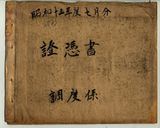 昭和十五年度七月分
證憑書
調度係